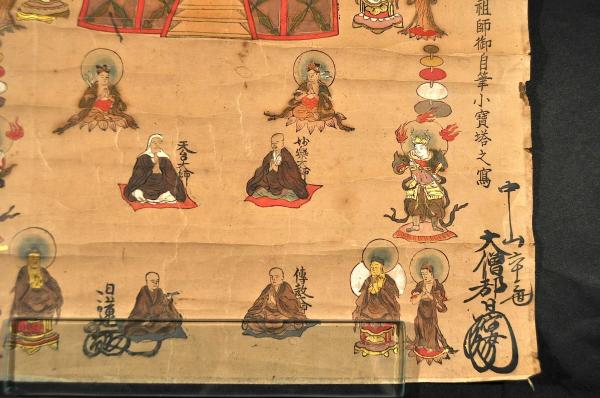 祖師御自筆小寶塔之寫
妙樂大師
天台大師
中山
大僧都日
傳教大師
日蓮